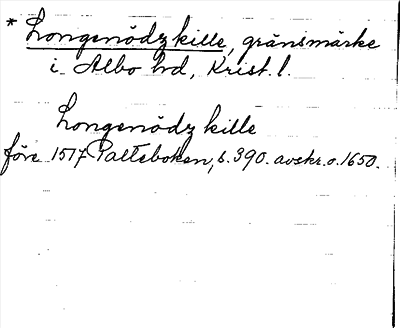 * Longenödz kille, gränsmärke
i Albo hd, Krist. l.
Longenödz kille
före 1517 Palteboken, s. 390. avskr. o. 1650.